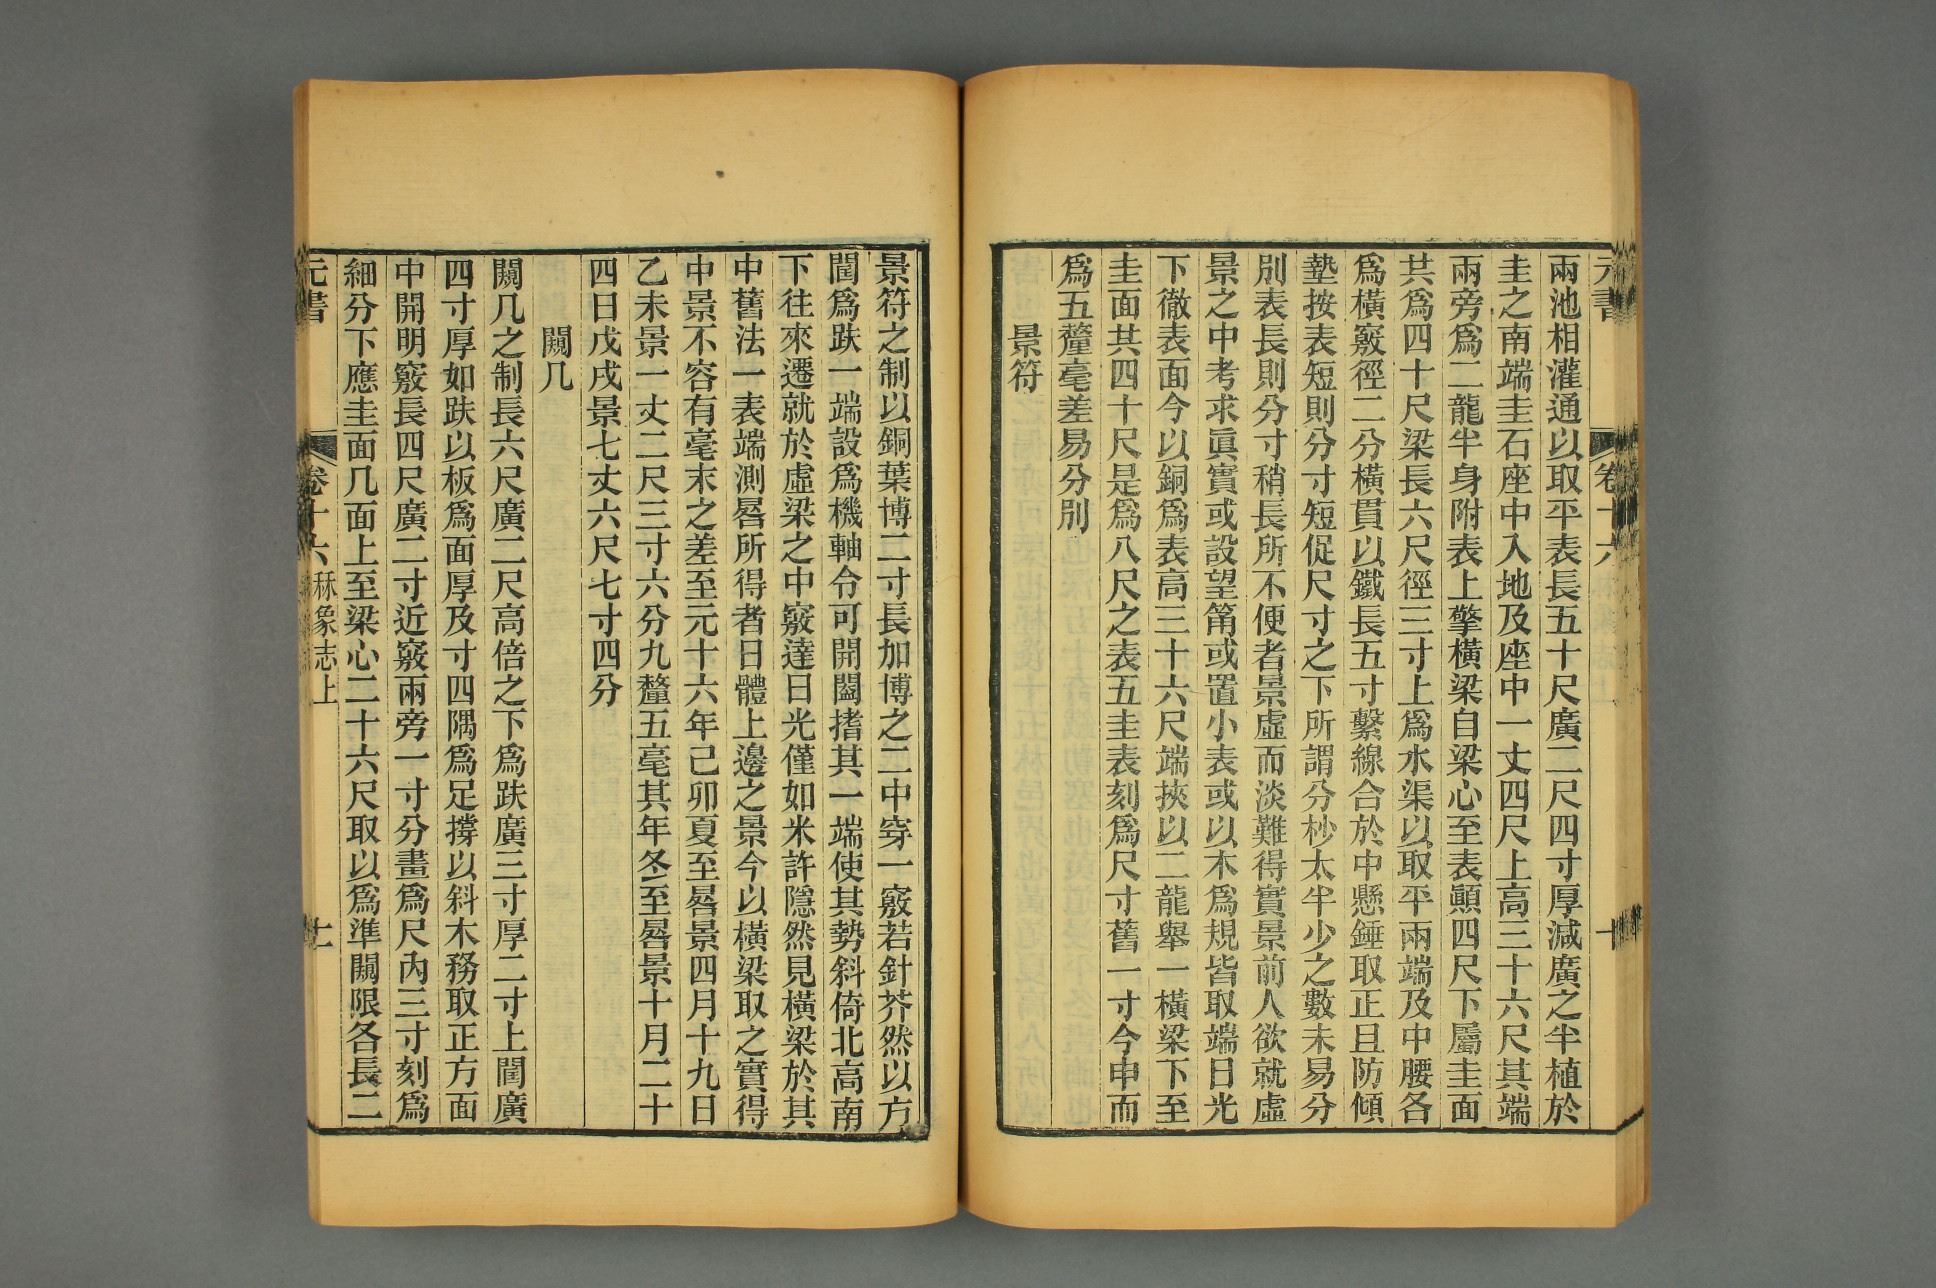 兩池相灌通以取平表長五十尺廣二尺四寸厚減廣之半植於
圭之南端圭石座中入地及座中一丈四尺上高三十六尺其端
兩旁爲二龍半身附表上擎橫梁自梁心至表顚四尺下屬圭面
共爲四十尺梁長六尺徑三寸上爲水渠以取平兩端及中腰各
爲橫竅徑二分橫貫以鐵長五寸繫線合於中懸錘取正且防傾
墊按表短則分寸短促尺寸之下所謂分杪太半少之數未易分
別表長則分寸稍長所不便者景虛而淡難得實景前人欲就虛
景之中考求眞實或設望筩或置小表或以木爲規皆取端日光
下徹表面今以銅爲表高三十六尺端挾以二龍舉一橫梁下至
圭面共四十尺是爲八尺之表五圭表刻爲尺寸舊一寸今申而
爲五釐毫差易分別
景符
景符之制以銅葉博二寸長加博之二中穿一竅若針芥然以方
䦚爲趺一端設爲機軸令可開闔㨪其一端使其勢斜倚北高南
下往來遷就於虛梁之中竅達日光僅如米許隱然見橫梁於其
中舊法一表端測晷所得者日體上邊之景今以橫梁取之實得
中景不容有毫末之差至元十六年己卯夏至晷景四月十九日
乙未景一丈二尺三寸六分九釐五毫其年冬至晷景十月二十
四日戊戌景七丈六尺七寸四分
闚几
闚几之制長六尺廣二尺高倍之下爲趺廣三寸厚二寸上䦚廣
四寸厚如趺以板爲面厚及寸四隅爲足撐以斜木務取正方面
中開明竅長四尺廣二寸近竅兩旁一寸分畫爲尺內三寸刻爲
細分下應圭面几面上至梁心二十六尺取以爲準闚限各長二
元書 卷十六 秝象志上 十一